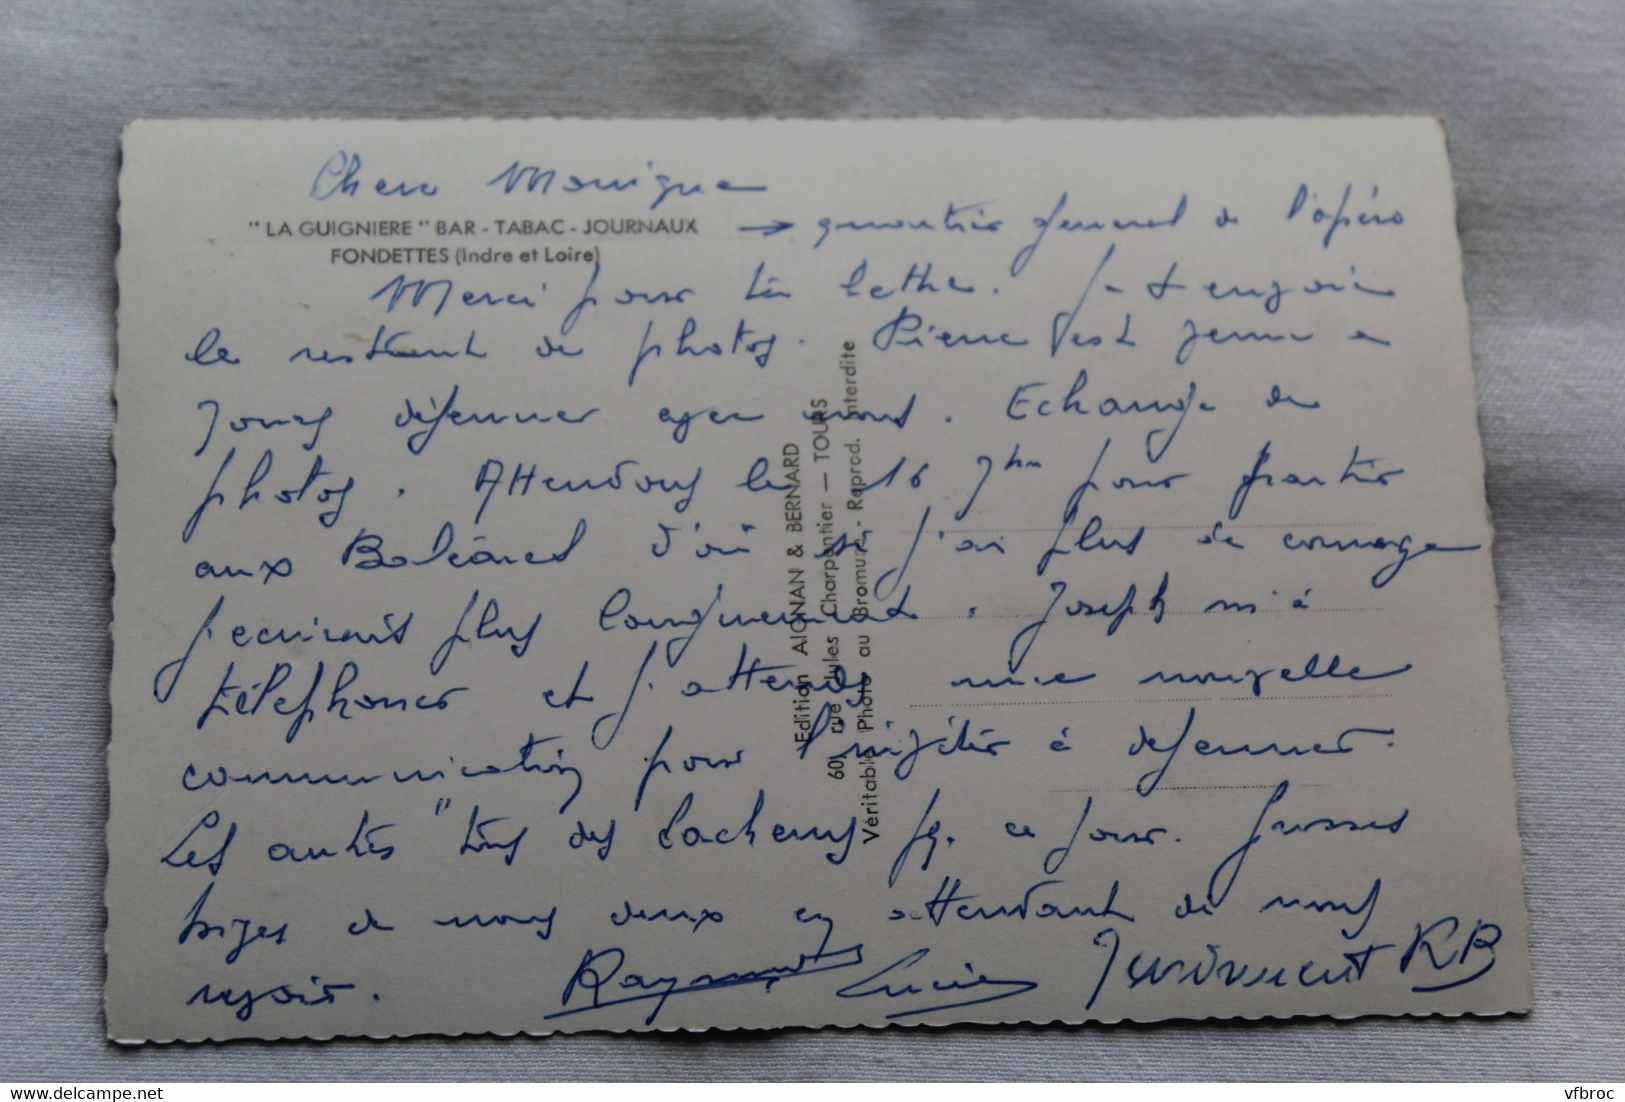 Chere Monique
" LA GUIGNIERE " BAR - TABAC - JOURNAUX
FONDETTES (Indre et Loire)
→ quartier general de l'apéro
Merci pour ta lettre. Je t envoie
le restant de photos. Pierre est venu
déjeuner avec nous. Echange de
photos. Attendons le 16 pour partir
aux Baléares d'où si j'ai plus de courage
j'ecrirais plus longuement. Joseph m'a
téléphoner et j'attends une nouvelle
communication pour l'inviter à dejeuner.
Les autres "tas des lacheurs" ce jour. Grosses
bises de nous deux en attendant de vous
revoir.
Raymond Lucie RB
Edition AIGNAN & BERNARD
60, rue Jules Charpentier — TOURS
Véritable Photo au Bromure - Reprod. Interdite
vfbroc